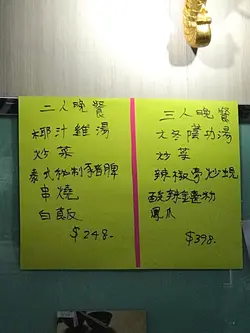 二人晚餐
椰汁雞湯
炒菜
泰式秘制豬脾
串燒
白飯
$248.-
三人晚餐
大冬陰功湯
炒菜
辣椒膏炒蜆
酸辣金邊粉
鳳爪
$398.-